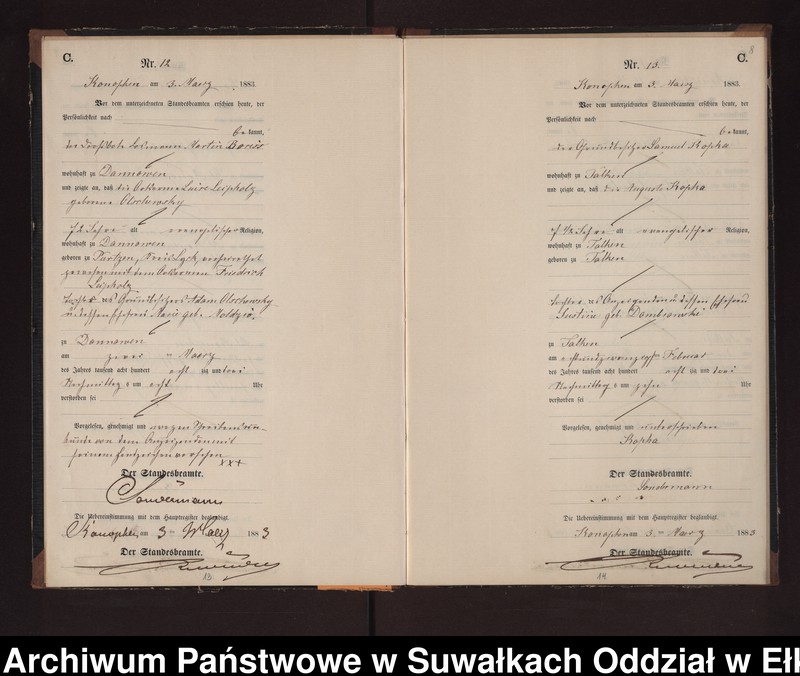 C.
Nr. 12
Konopken am 3. Maerz 1883.
Vor dem unterzeichneten Standesbeamten erschien heute, der
Persönlichkeit nach
bekannt,
der Losmann Martin
wohnhaft zu Dannowen
und zeigte an, daß die Luise Leipholz
geborene Olschewsky
72 Jahre alt evangelischer Religion,
wohnhaft zu Dannowen
geboren zu Kreis Lyck, verheirathet
gewesen mit dem Friedrich
Leipholz
Tochter des Grundbesitzers Adam Olschewsky
u. dessen Ehefrau geb.
zu Dannowen
am zwei Maerz
des Jahres tausend acht hundert acht zig und drei
Nachmittags um acht Uhr
verstorben sei
Vorgelesen, genehmigt und wegen Schreibensun-
kunde von dem Anzeigenden mit
seinem Handzeichen versehen
xxx
Der Standesbeamte.
Sondermann
Die Uebereinstimmung mit dem Hauptregister beglaubigt.
Konopken am 3 ten Maerz 1883
Der Standesbeamte.
Sondermann
13
8
C.
Nr. 13.
Konopken am 3. Maerz 1883.
Vor dem unterzeichneten Standesbeamten erschien heute, der
Persönlichkeit nach
bekannt,
der Grundbesitzer Samuel Kopka
wohnhaft zu Talken
und zeigte an, daß die Auguste Kopka
1/2 Jahre alt evangelischer Religion,
wohnhaft zu Talken
geboren zu Talken
Tochter des Anzeigenden u. dessen Ehefrau
Justine geb. Dombrowski
zu Talken
am achtundzwanzigst Februar
des Jahres tausend acht hundert acht zig und drei
Nachmittags um zehn Uhr
verstorben sei
Vorgelesen, genehmigt und unterschrieben
Kopka
Der Standesbeamte.
Sondermann
Die Uebereinstimmung mit dem Hauptregister beglaubigt.
Konopken am 3. ten Maerz 1883
Der Standesbeamte.
Sondermann
14
Archiwum Państwowe w Suwałkach Oddział w Ełk